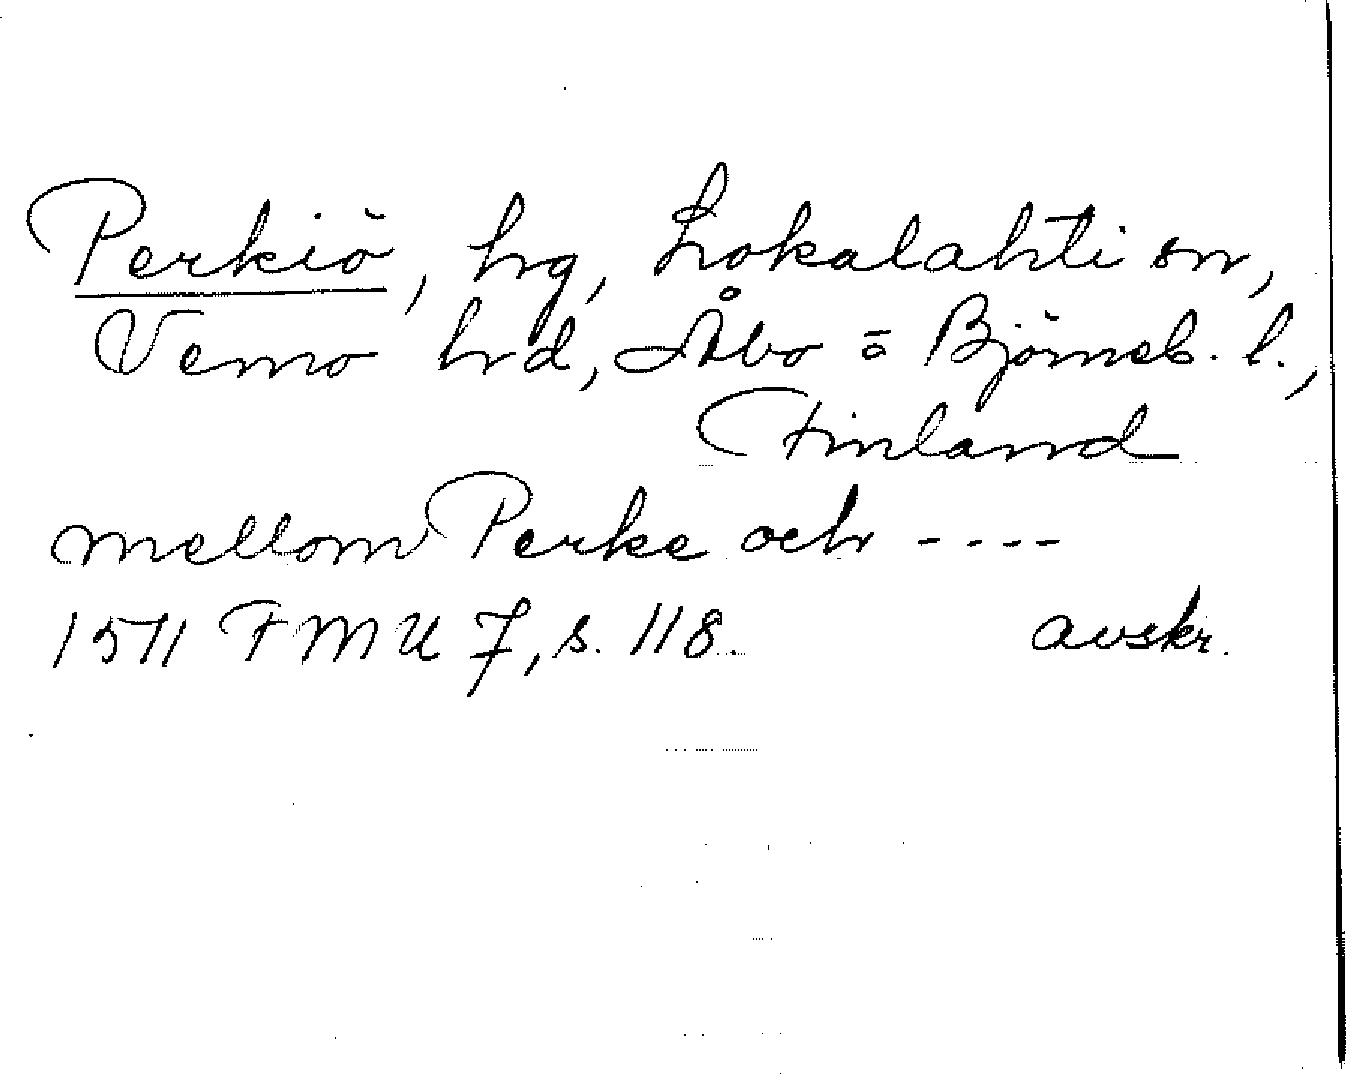 Perkiö, hg, Lokalahti sn,
Vemo hrd, Åbo o Björneb. l.,
Finland
mellom Perke och ----
1511 FMU 7, s. 118. avskr.